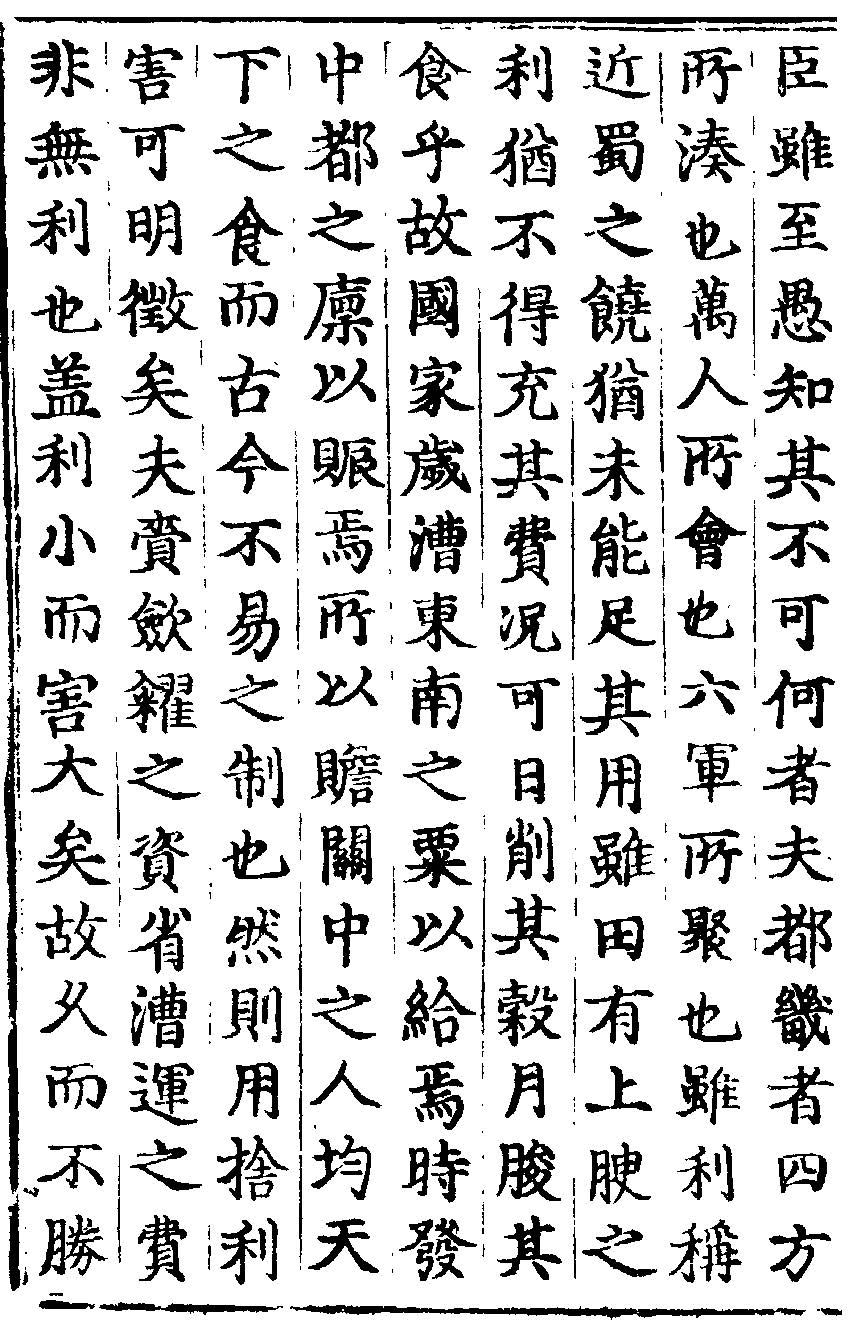 臣雖至愚知其不可何者夫都畿者四方
所湊也萬人所會也六軍所聚也雖利稱
近蜀之饒猶未能足其用雖田有上腴之
利猶不得充其費况可日削其穀月朘其
食乎故國家歲漕東南之粟以給焉時發
中都之廩以賑焉所以贍關中之人均天
下之食而古今不易之制也然則用捨利
害可明徵矣夫賫歛糴之資省漕運之費
非無利也盖利小而害大矣故久而不勝